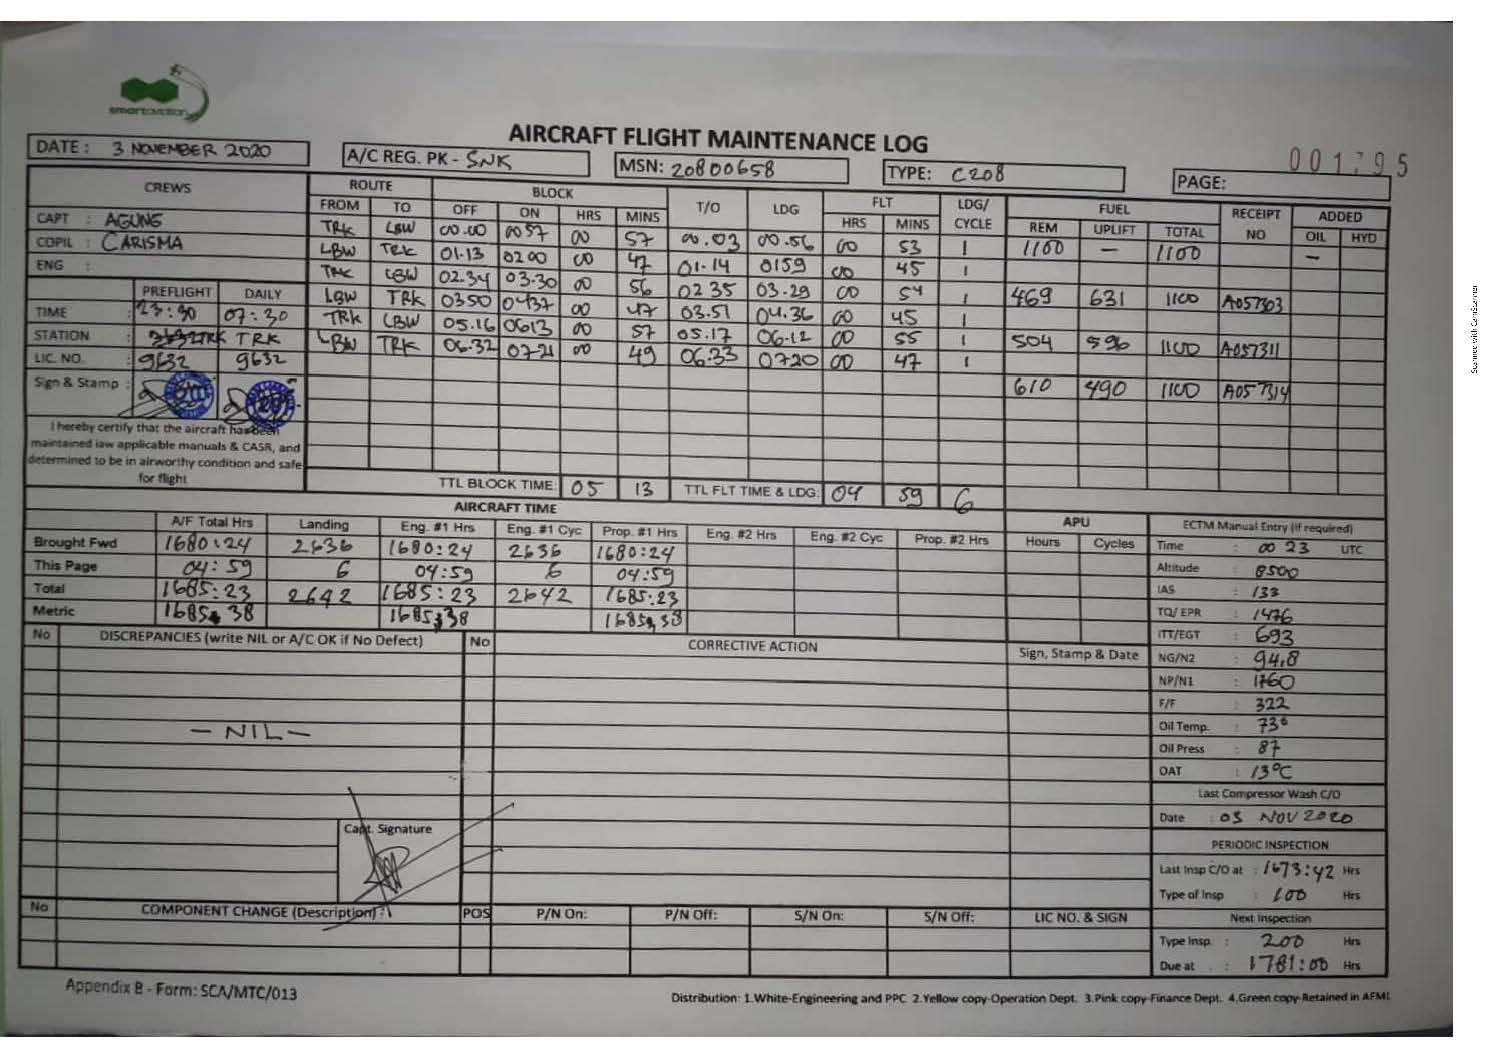 smartaviation
AIRCRAFT FLIGHT MAINTENANCE LOG
001795
DATE : 3 NOVEMBER 2020 A/C REG. PK - SNK MSN: 20800658 TYPE: C208 PAGE:
CREWS ROUTE BLOCK T/O LDG FLT LDG/ CYCLE FUEL RECEIPT NO ADDED
FROM TO OFF ON HRS MINS HRS MINS REM UPLIFT TOTAL OIL HYD
CAPT : AGUNG
COPIL : CARISMA
ENG :
TRK LBW 00.00 0057 00 57 00.03 00.56 00 53 1 1100 — 1100 —
LBW TRK 01.13 0200 00 47 01.14 0159 00 45 1
TRK LBW 02.34 03.30 00 56 02 35 03.29 00 54 1 469 631 1100 A057303
LBW TRK 0350 0437 00 47 03.51 04.36 00 45 1
TRK LBW 05.16 0613 00 57 05.17 06.12 00 55 1 504 596 1100 A057311
LBW TRK 06.32 0721 00 49 06.33 0720 00 47 1
610 490 1100 A057314
PREFLIGHT DAILY
TIME : 23:30 07:30
STATION : TRK TRK
LIC. NO. : 9632 9632
Sign & Stamp :
I hereby certify that the aircraft has been
maintained iaw applicable manuals & CASR, and
determined to be in airworthy condition and safe
for flight
TTL BLOCK TIME: 05 13 TTL FLT TIME & LDG: 04 59 6
AIRCRAFT TIME
A/F Total Hrs Landing Eng. #1 Hrs Eng. #1 Cyc Prop. #1 Hrs Eng. #2 Hrs Eng. #2 Cyc Prop. #2 Hrs APU Hours Cycles
Brought Fwd 1680:24 2636 1680:24 2636 1680:24
This Page 04:59 6 04:59 6 04:59
Total 1685:23 2642 1685:23 2642 1685:23
Metric 1685,38 1685,38 1685,38
ECTM Manual Entry (if required)
Time : 00 23 UTC
Altitude : 8500
IAS : 133
TQ/ EPR : 1476
ITT/EGT : 693
NG/N2 : 94,8
NP/N1 : 1760
F/F : 322
Oil Temp. : 73°
Oil Press : 87
OAT : 13°C
Last Compressor Wash C/O
Date : 03 NOV 2020
PERIODIC INSPECTION
Last Insp C/O at : 1673:42 Hrs
Type of Insp : 100 Hrs
Next Inspection
Type Insp : 200 Hrs
Due at : 1781:00 Hrs
No DISCREPANCIES (write NIL or A/C OK if No Defect) No CORRECTIVE ACTION Sign, Stamp & Date
— NIL —
Capt. Signature
No COMPONENT CHANGE (Description) POS P/N On: P/N Off: S/N On: S/N Off: LIC NO. & SIGN
Appendix B - Form: SCA/MTC/013
Distribution: 1.White-Engineering and PPC 2.Yellow copy-Operation Dept. 3.Pink copy-Finance Dept. 4.Green copy-Retained in AFML
Scanned with CamScanner